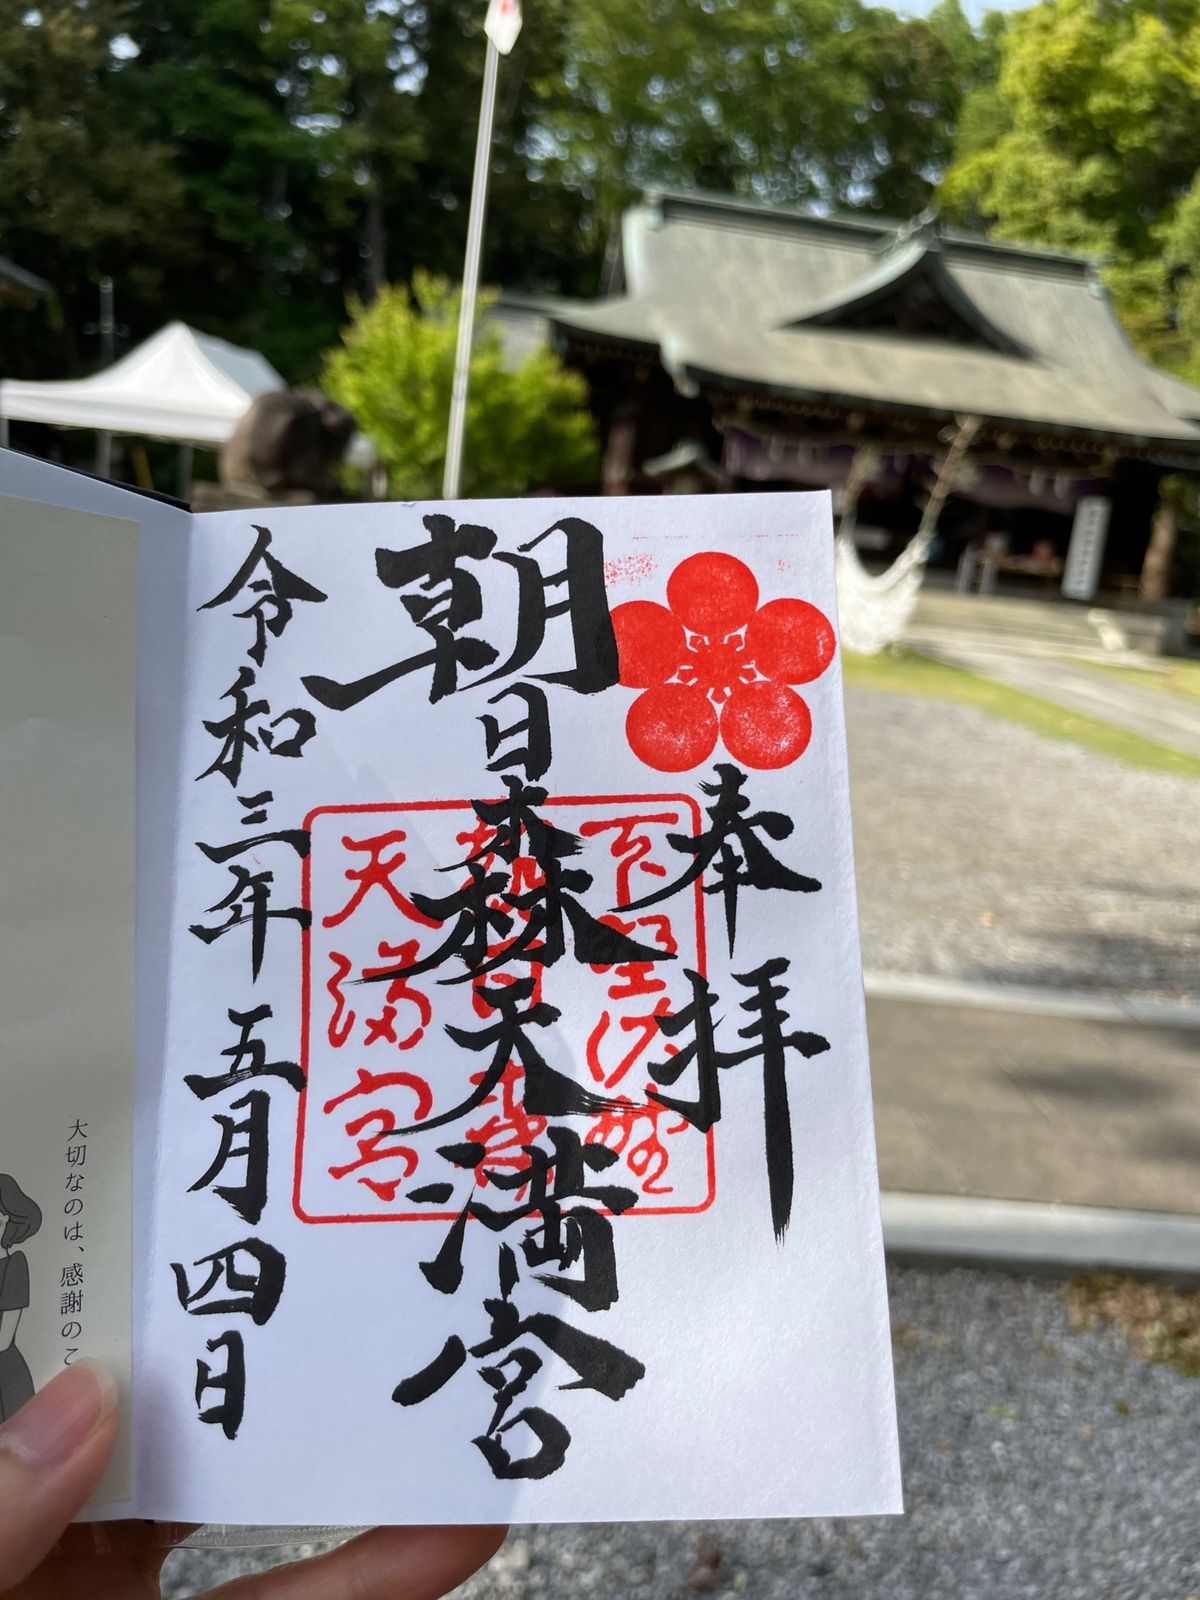 奉拝
朝日森天満宮
下野佐野
朝日森
天満宮
令和三年五月四日
大切なのは、感謝のこ